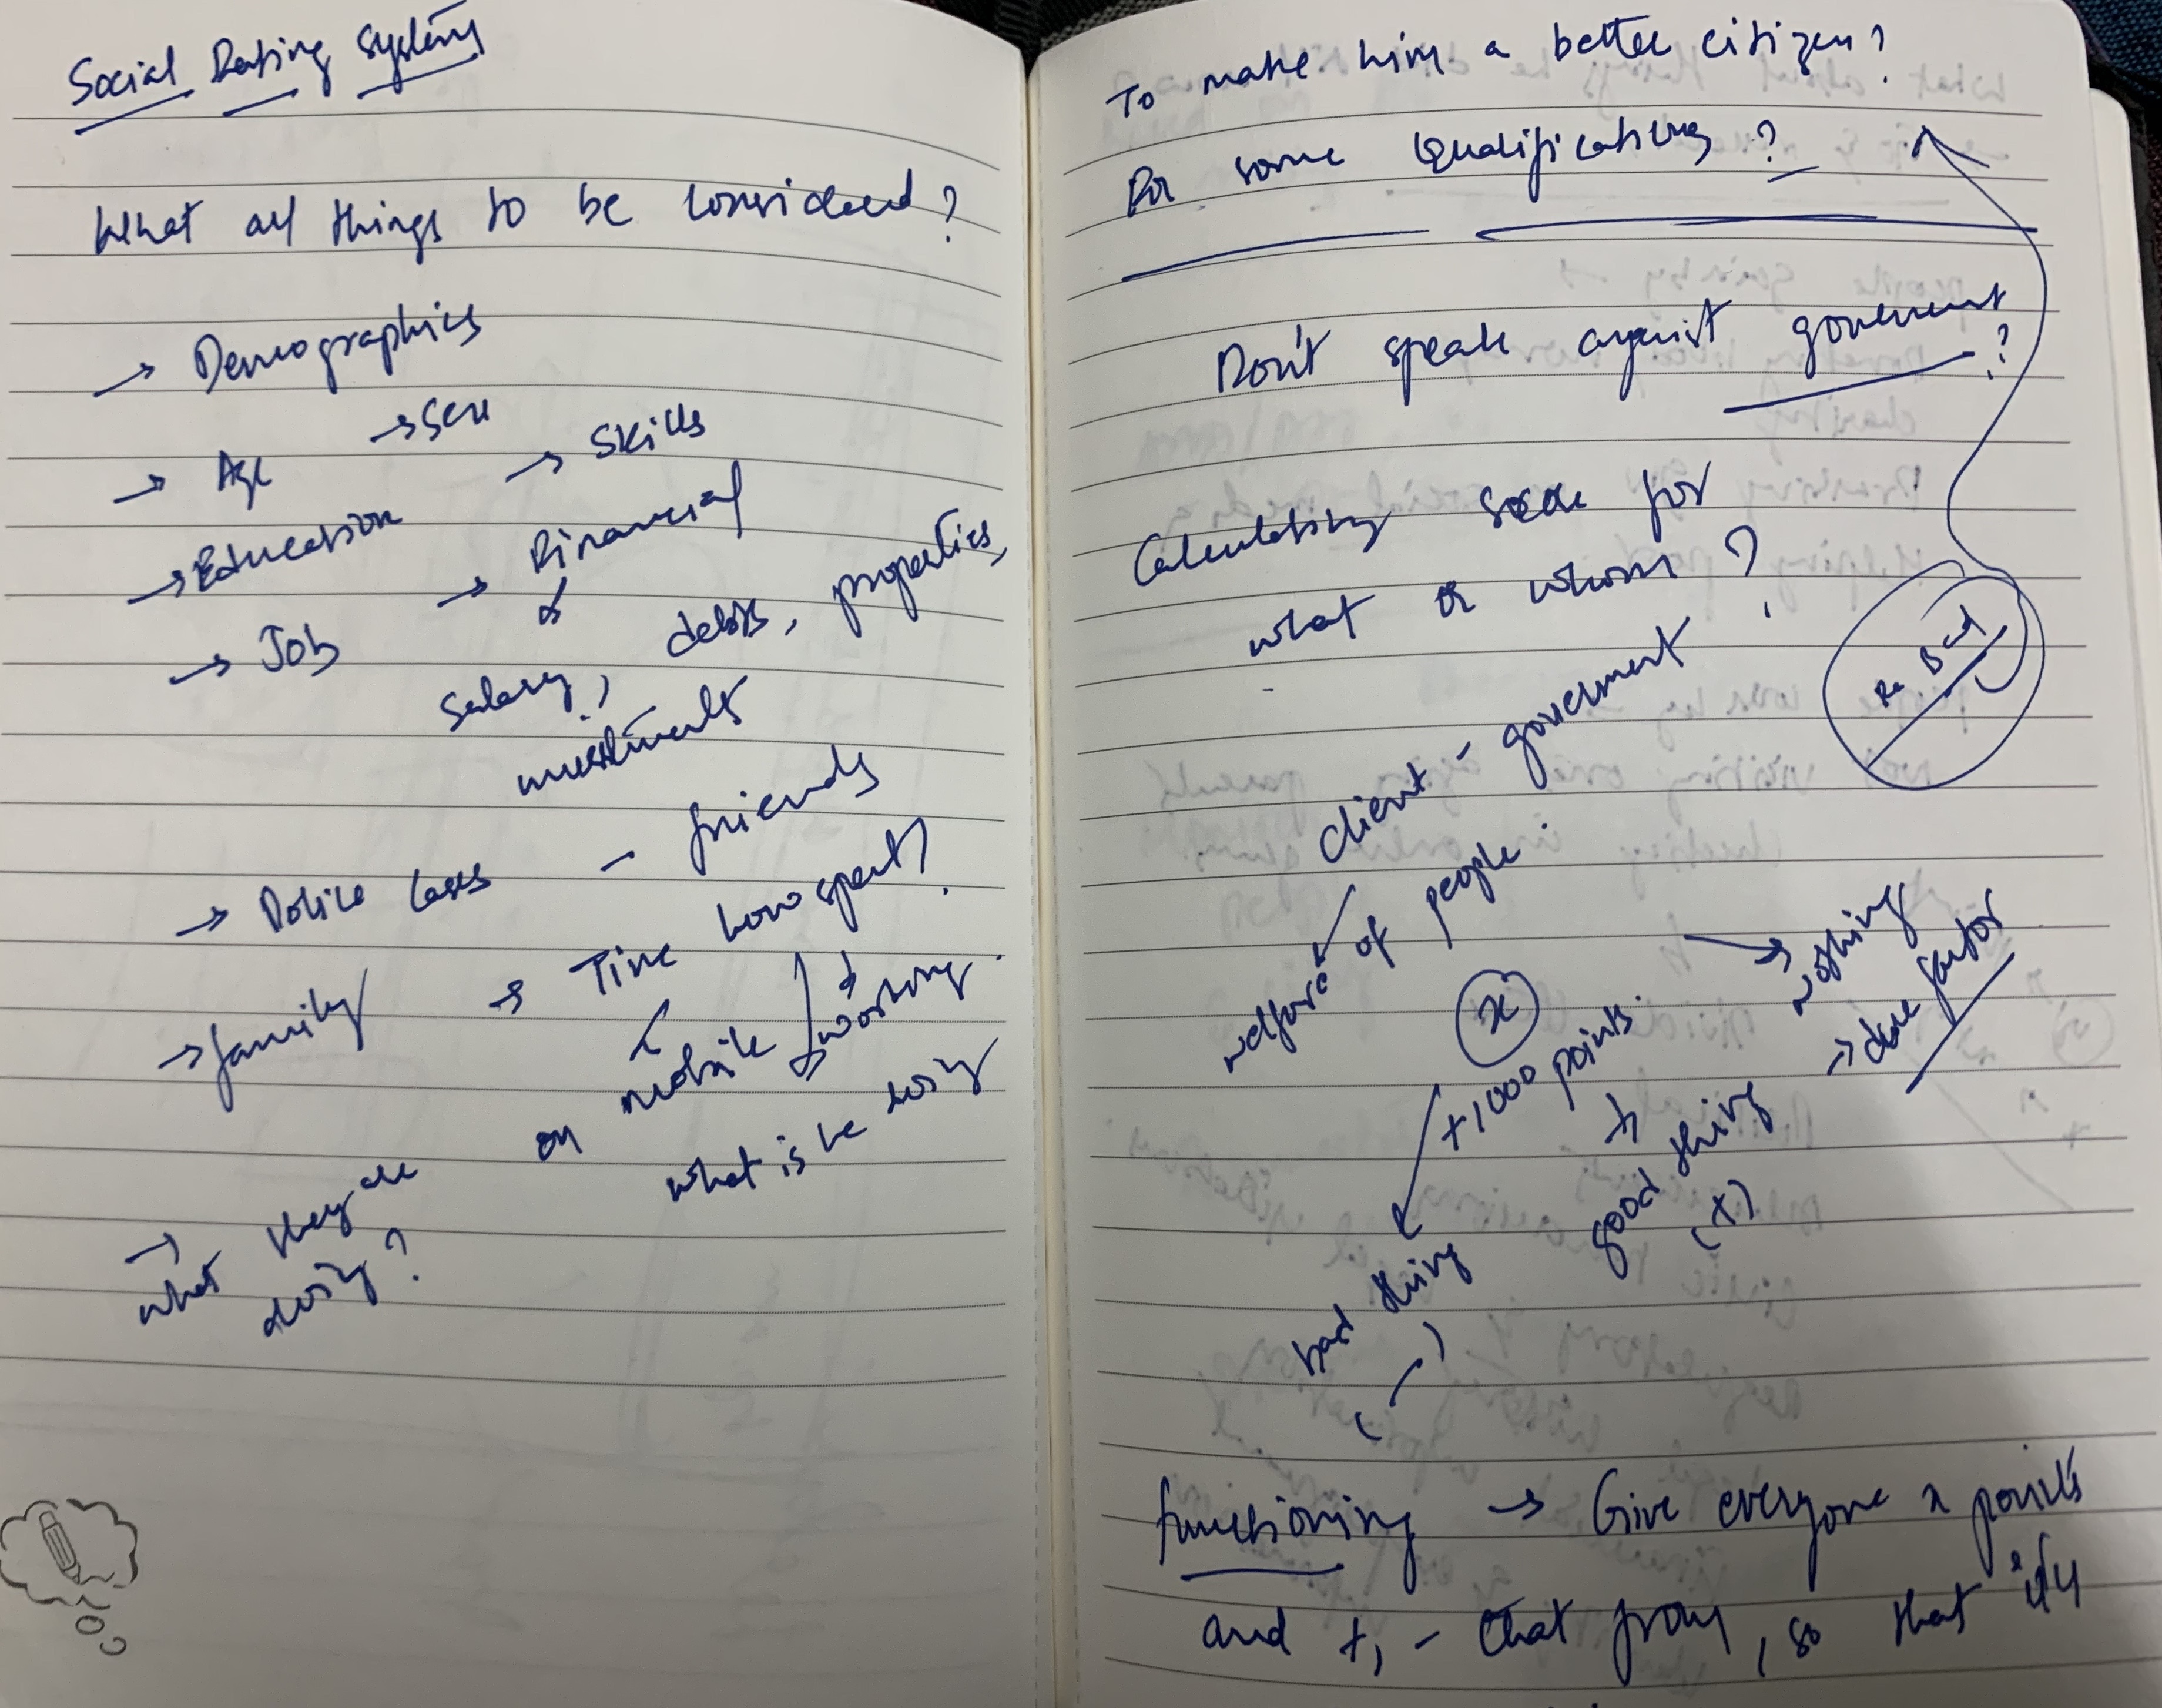 Social Rating System
What all things to be considered?
→ Demographics
→ Age → Sex
→ Education → Skills
→ Job → Financial
Salary, debts, properties,
investments
→ Police Cases - friends
→ family → Time how spent?
on mobile working.
what is he doing
→ what they are
doing?
To make him a better citizen?
For some Qualifications?
Don't speak against goverment?
Calculating score for
what or whom?
Bad
client - goverment
welfare of people.
x
+1000 points.
→ nothing
→ due factor
good thing
(+)
bad thing
(-)
functioning → Give everyone x points
and +, - that from, so that